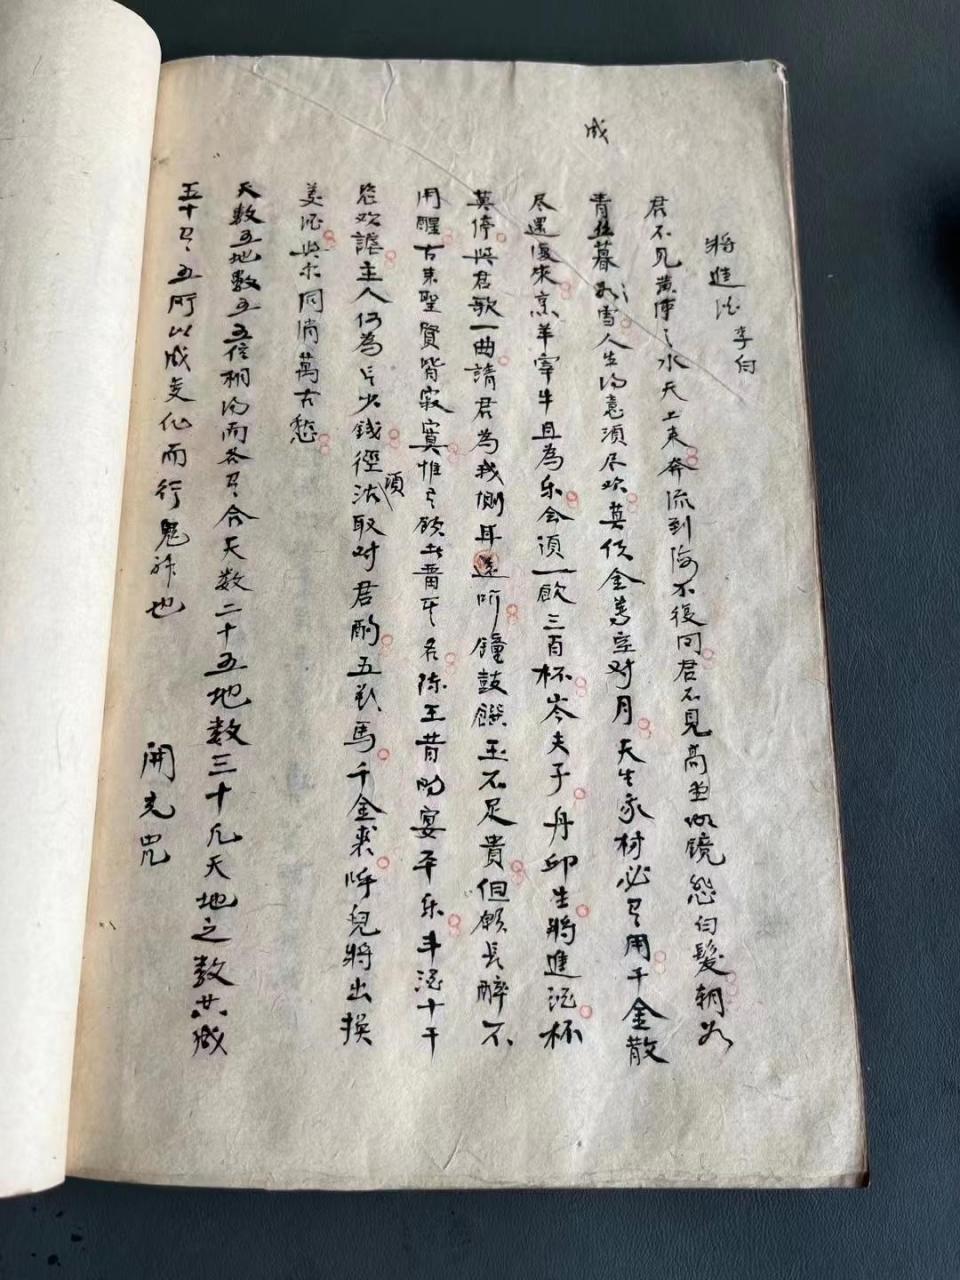 成
將進酒 李白
君不见黄河之水天上来奔流到海不復回君不見高堂明镜悲白髮朝如
青丝暮如雪人生得意須尽欢莫使金尊空对月天生我材必有用千金散
尽還復來烹羊宰牛且為乐会須一飲三百杯岑夫子丹邱生將進酒杯
莫停與君歌一曲請君為我側耳听鐘鼓饌玉不足貴但願長醉不
用醒古来聖賢皆寂寞惟有飲者畱其名陈王昔时宴平乐斗酒十千
恣欢謔主人何為言少錢徑須沽取对君酌五花馬千金裘呼兒將出换
美酒與尔同消萬古愁
天数五地数五五位相得而各有合天数二十五地数三十凡天地之数共
五十有五所以成变化而行鬼神也
開光咒